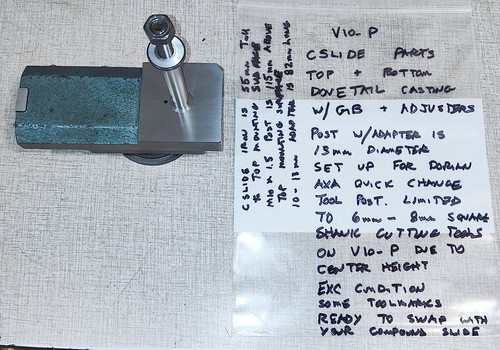 V10-P
CSLIDE PARTS
TOP + BOTTOM
DOVETAIL CASTING
W/ GIB + ADJUSTERS
POST W/ADAPTER IS
13mm DIAMETER
SET UP FOR DORIAN
AXA QUICK CHANGE
TOOL POST. LIMITED
TO 6mm - 8mm SQUARE
SHANK CUTTING TOOLS
ON V10-P DUE TO
CENTER HEIGHT
EXC CONDITION
SOME TOOLMARKS
READY TO SWAP WITH
YOUR COMPOUND SLIDE
CSLIDE IRON IS 55mm TALL
to TOP MOUNTING SURFACE
M10 x 1.5 POST IS 115mm ABOVE
TOP MOUNTING SURFACE
10 - 13mm ADAPTER IS 82mm LONG